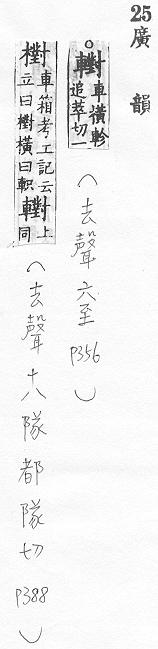 25
廣韻
○轛車橫軨
追萃切一
(去聲六至 P356)
樹車箱考工記云
立曰樹橫曰軹轛上同
(去聲十八隊都隊切 P388)